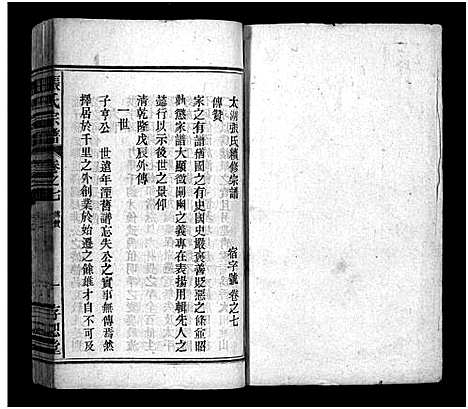 太湖張氏續修宗譜　宿字號　卷之七
傳贊
家之有譜猶國之有史國史嚴褒善貶惡之條並昭
勸懲家譜大顯微闡幽之義專在表揚用輯先人之
懿行以示後世之景仰
清乾隆戊辰外傳
一世
子亨公　世遠年湮舊譜忘失公之實事無傳焉然
擇居於千里之外創業於始遷之餘雄才自不可及
張氏宗譜
卷之七
傳贊
一
孝思堂